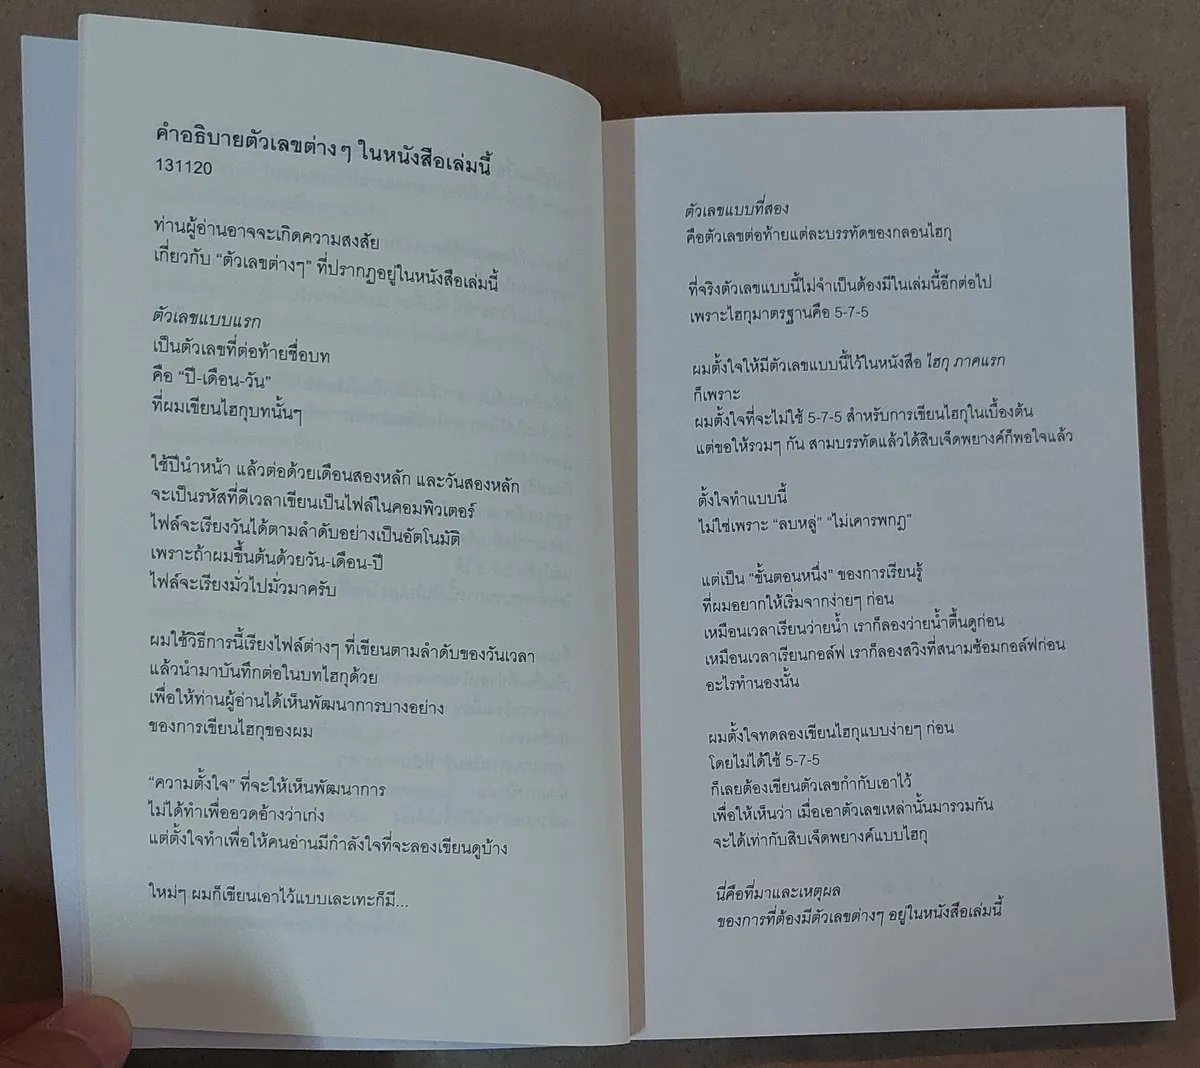 คำอธิบายตัวเลขต่างๆ ในหนังสือเล่มนี้
131120
ท่านผู้อ่านอาจจะเกิดความสงสัย
เกี่ยวกับ “ตัวเลขต่างๆ” ที่ปรากฏอยู่ในหนังสือเล่มนี้
ตัวเลขแบบแรก
เป็นตัวเลขที่ต่อท้ายชื่อบท
คือ “ปี-เดือน-วัน”
ที่ผมเขียนไฮกุบทนั้นๆ
ใช้ปีนำหน้า แล้วต่อด้วยเดือนสองหลัก และวันสองหลัก
จะเป็นรหัสที่ดีเวลาเขียนเป็นไฟล์ในคอมพิวเตอร์
ไฟล์จะเรียงวันได้ตามลำดับอย่างเป็นอัตโนมัติ
เพราะถ้าผมขึ้นต้นด้วยวัน-เดือน-ปี
ไฟล์จะเรียงมั่วไปมั่วมาครับ
ผมใช้วิธีการนี้เรียงไฟล์ต่างๆ ที่เขียนตามลำดับของวันเวลา
แล้วนำมาบันทึกต่อในบทไฮกุด้วย
เพื่อให้ท่านผู้อ่านได้เห็นพัฒนาการบางอย่าง
ของการเขียนไฮกุของผม
“ความตั้งใจ” ที่จะให้เห็นพัฒนาการ
ไม่ได้ทำเพื่ออวดอ้างว่าเก่ง
แต่ตั้งใจทำเพื่อให้คนอ่านมีกำลังใจที่จะลองเขียนดูบ้าง
ใหม่ๆ ผมก็เขียนเอาไว้แบบเละเทะก็มี...
ตัวเลขแบบที่สอง
คือตัวเลขต่อท้ายแต่ละบรรทัดของกลอนไฮกุ
ที่จริงตัวเลขแบบนี้ไม่จำเป็นต้องมีในเล่มนี้อีกต่อไป
เพราะไฮกุมาตรฐานคือ 5-7-5
ผมตั้งใจให้มีตัวเลขแบบนี้ไว้ในหนังสือ ไฮกุ ภาคแรก
ก็เพราะ
ผมตั้งใจที่จะไม่ใช้ 5-7-5 สำหรับการเขียนไฮกุในเบื้องต้น
แต่ขอให้รวมๆ กัน สามบรรทัดแล้วได้สิบเจ็ดพยางค์ก็พอใจแล้ว
ตั้งใจทำแบบนี้
ไม่ใช่เพราะ “ลบหลู่” “ไม่เคารพกฎ”
แต่เป็น “ขั้นตอนหนึ่ง” ของการเรียนรู้
ที่ผมอยากให้เริ่มจากง่ายๆ ก่อน
เหมือนเวลาเรียนว่ายน้ำ เราก็ลองว่ายน้ำตื้นดูก่อน
เหมือนเวลาเรียนกอล์ฟ เราก็ลองสวิงที่สนามซ้อมกอล์ฟก่อน
อะไรทำนองนั้น
ผมตั้งใจทดลองเขียนไฮกุแบบง่ายๆ ก่อน
โดยไม่ได้ใช้ 5-7-5
ก็เลยต้องเขียนตัวเลขกำกับเอาไว้
เพื่อให้เห็นว่า เมื่อเอาตัวเลขเหล่านั้นมารวมกัน
จะได้เท่ากับสิบเจ็ดพยางค์แบบไฮกุ
นี่คือที่มาและเหตุผล
ของการที่ต้องมีตัวเลขต่างๆ อยู่ในหนังสือเล่มนี้